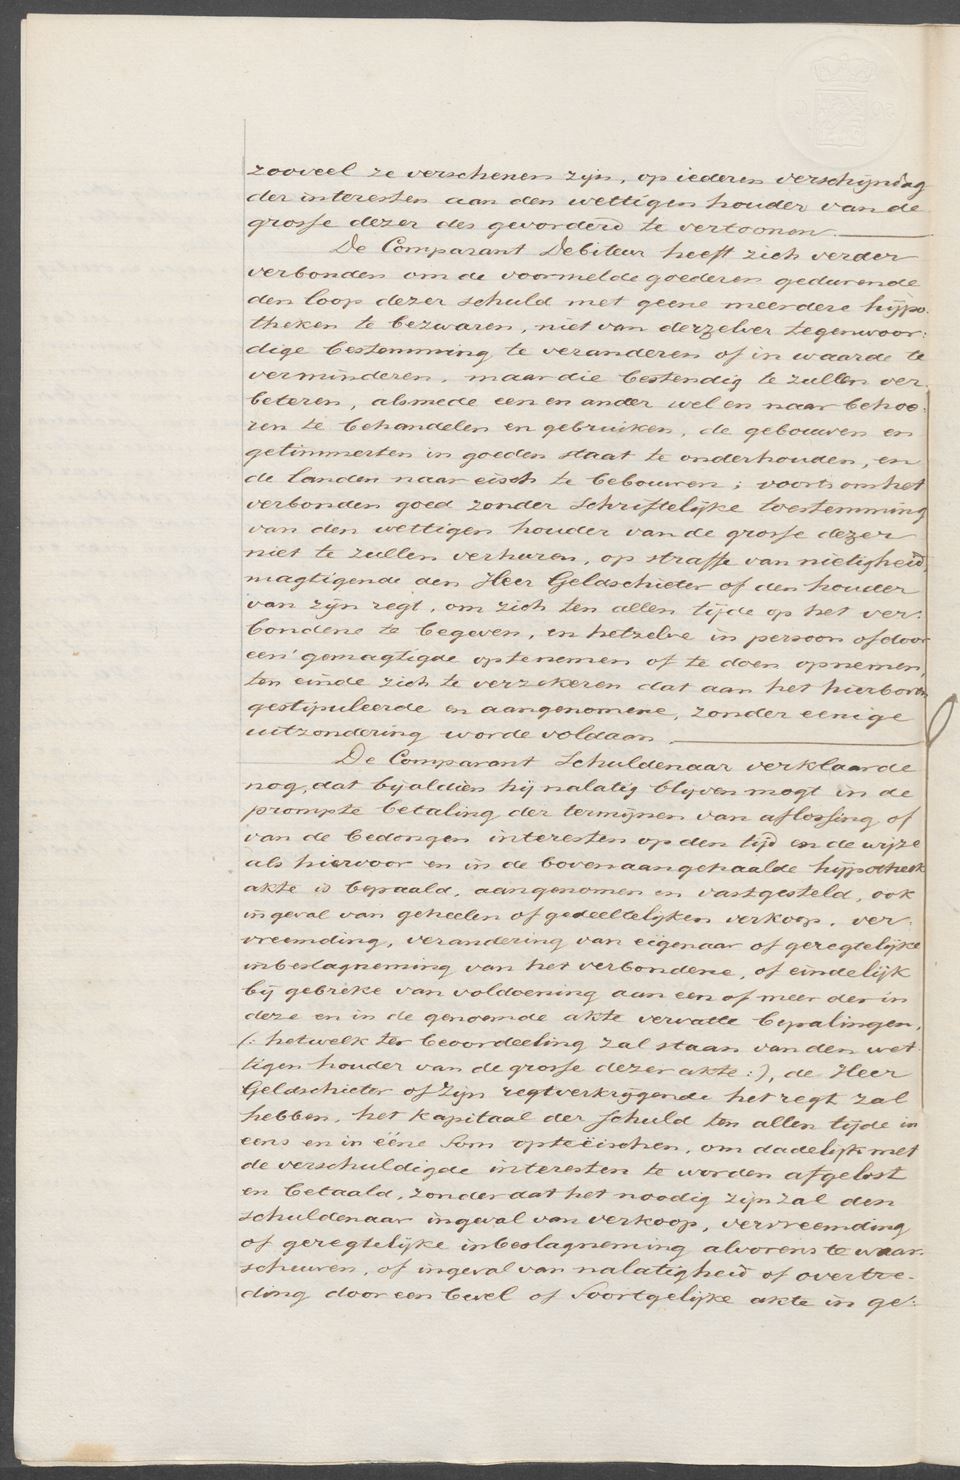 zooveel ze verschenen zijn, op iederen verschijndag
der interesten aan den wettigen houder van de
grosse dezer des gevorderd te vertoonen.
De Comparant Debiteur heeft zich verder
verbonden om de voormelde goederen gedurende
den loop dezer schuld met geene meerdere hijpo-
theken te bezwaren, niet van derzelver tegenwoor:
dige bestemming te veranderen of in waarde te
verminderen, maar die bestendig te zullen ver
beteren, alsmede een en ander wel en naar behoo:
ren te behandelen en gebruiken, de gebouwen en
getimmerten in goeden staat te onderhouden, en
de landen naar eisch te bebouwen; voorts om het
verbonden goed zonder schriftelijke toestemming
van den wettigen houder van de grosse dezer
niet te zullen verhuren, op straffe van nietigheid,
magtigende den Heer Geldschieter of den houder
van zijn regt, om zich ten allen tijde op het ver:
bondene te begeven, en hetzelve in persoon of door
een gemagtigde optenemen of te doen opnemen,
ten einde zich te verzekeren dat aan het hierboven
gestipuleerde en aangenomene, zonder eenige
uitzondering worde voldaan.
De Comparant Schuldenaar verklaarde
nog, dat bijaldien hij nalatig blijven mogt in de
prompte betaling der termijnen van aflossing of
van de bedongen interesten op den tijd en de wijze
als hiervoor en in de bovenaangehaalde hijpotheek
akte is bepaald, aangenomen en vastgesteld, ook
ingeval van geheelen of gedeeltelijken verkoop, ver:
vreemding, verandering van eigenaar of geregtelijke
inbeslagneming van het verbondene, of eindelijk
bij gebreke van voldoening aan een of meer der in
deze en in de genoemde akte vervatte bepalingen,
(: hetwelk ter beoordeeling zal staan van den wet
tigen houder van de grosse dezer akte :), de Heer
Geldschieter of zijn regtverkrijgende het regt zal
hebben, het kapitaal der schuld ten allen tijde in
eens en in ééne som opteëischen, om dadelijk met
de verschuldigde interesten te worden afgelost
en betaald, zonder dat het noodig zijn zal den
schuldenaar ingeval van verkoop, vervreemding
of geregtelijke inbeslagneming alvorens te waar:
schuwen, of ingeval van nalatigheid of overtre-
ding door een bevel of soortgelijke akte in ge: